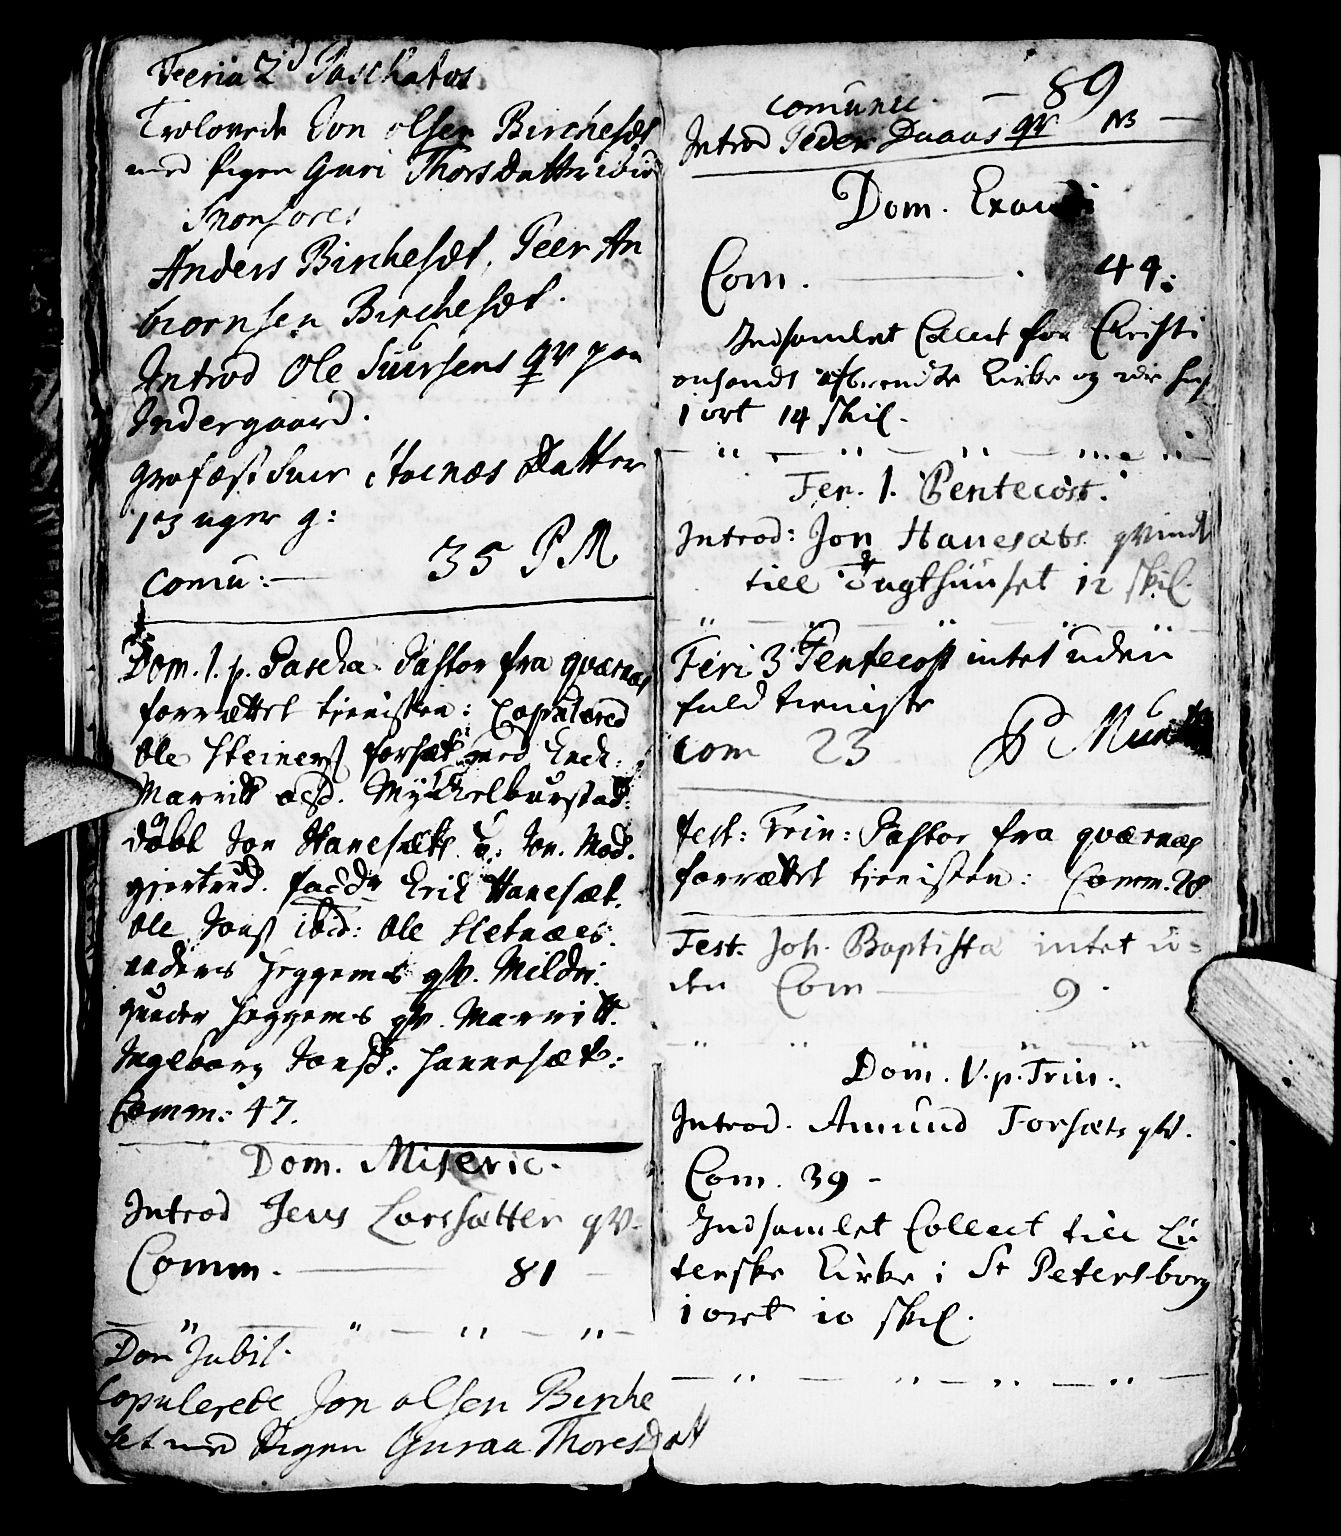 Feeria 2d Paschatos
Trolovede Jon olsen Birchesæt
med Pigen Guri Thorsdatter ibid
Sponsores
Anders Birchesæt, Peer An
biornsen Birchesæt.
Introd Ole Siursens qv paa
Indergaard.
Grafæst Siur Steenæs datter
13 uger g:
comu: — 35 P M
Dom. 1. p. Pascha. Pastor fra qværnæs
forrættet tienisten: Copulered
Ole Steiners forsæt med Enck:
Marritt Myckelburstad:
døbt Jon Hanesæts b: Jon. Mod.
giertrud. fadd: Erik Hanesæt.
Ole Jons ibid: Ole Sletnæs.
anders Heggems qv. Mildri.
gunder Heggems qv. Marritt.
Ingeborg Jonsd: Hannesæt:
Comm: 47.
Dom. Miseric.
Introd Jens Lorsætter qv.
Comm. — 81 —
Dom Jubil.
Copulerede Jon olsen Birche
set med Pigen Guraa Thoresdatt
comunic. — 89
Introd Peder Daaas qv
Dom. Exaudi
Com. — 44:
Indsamlet Collect for Christi
ansands afbrendte Kirke og
1 ort 14 skil.
Fer. 1. Pentecost.
Introd: Jon Hanesæts qvind
till Tugthuuset 12 skil.
Feri 3 Pentecost intet uden
fuld tieniste
com 23 P Munch
Fest: Trin: Pastor fra qværnæs
forrættet tienisten: Comm. 28.
Fest. Joh. Baptista intet u-
den Com — 9.
Dom. V. p. Trin.
Introd. Amund Forsæts qv.
Com. 39 -
Indsamlet Collect till Lu
terske Kirke i St Petersborg
1 ort 10 skil.